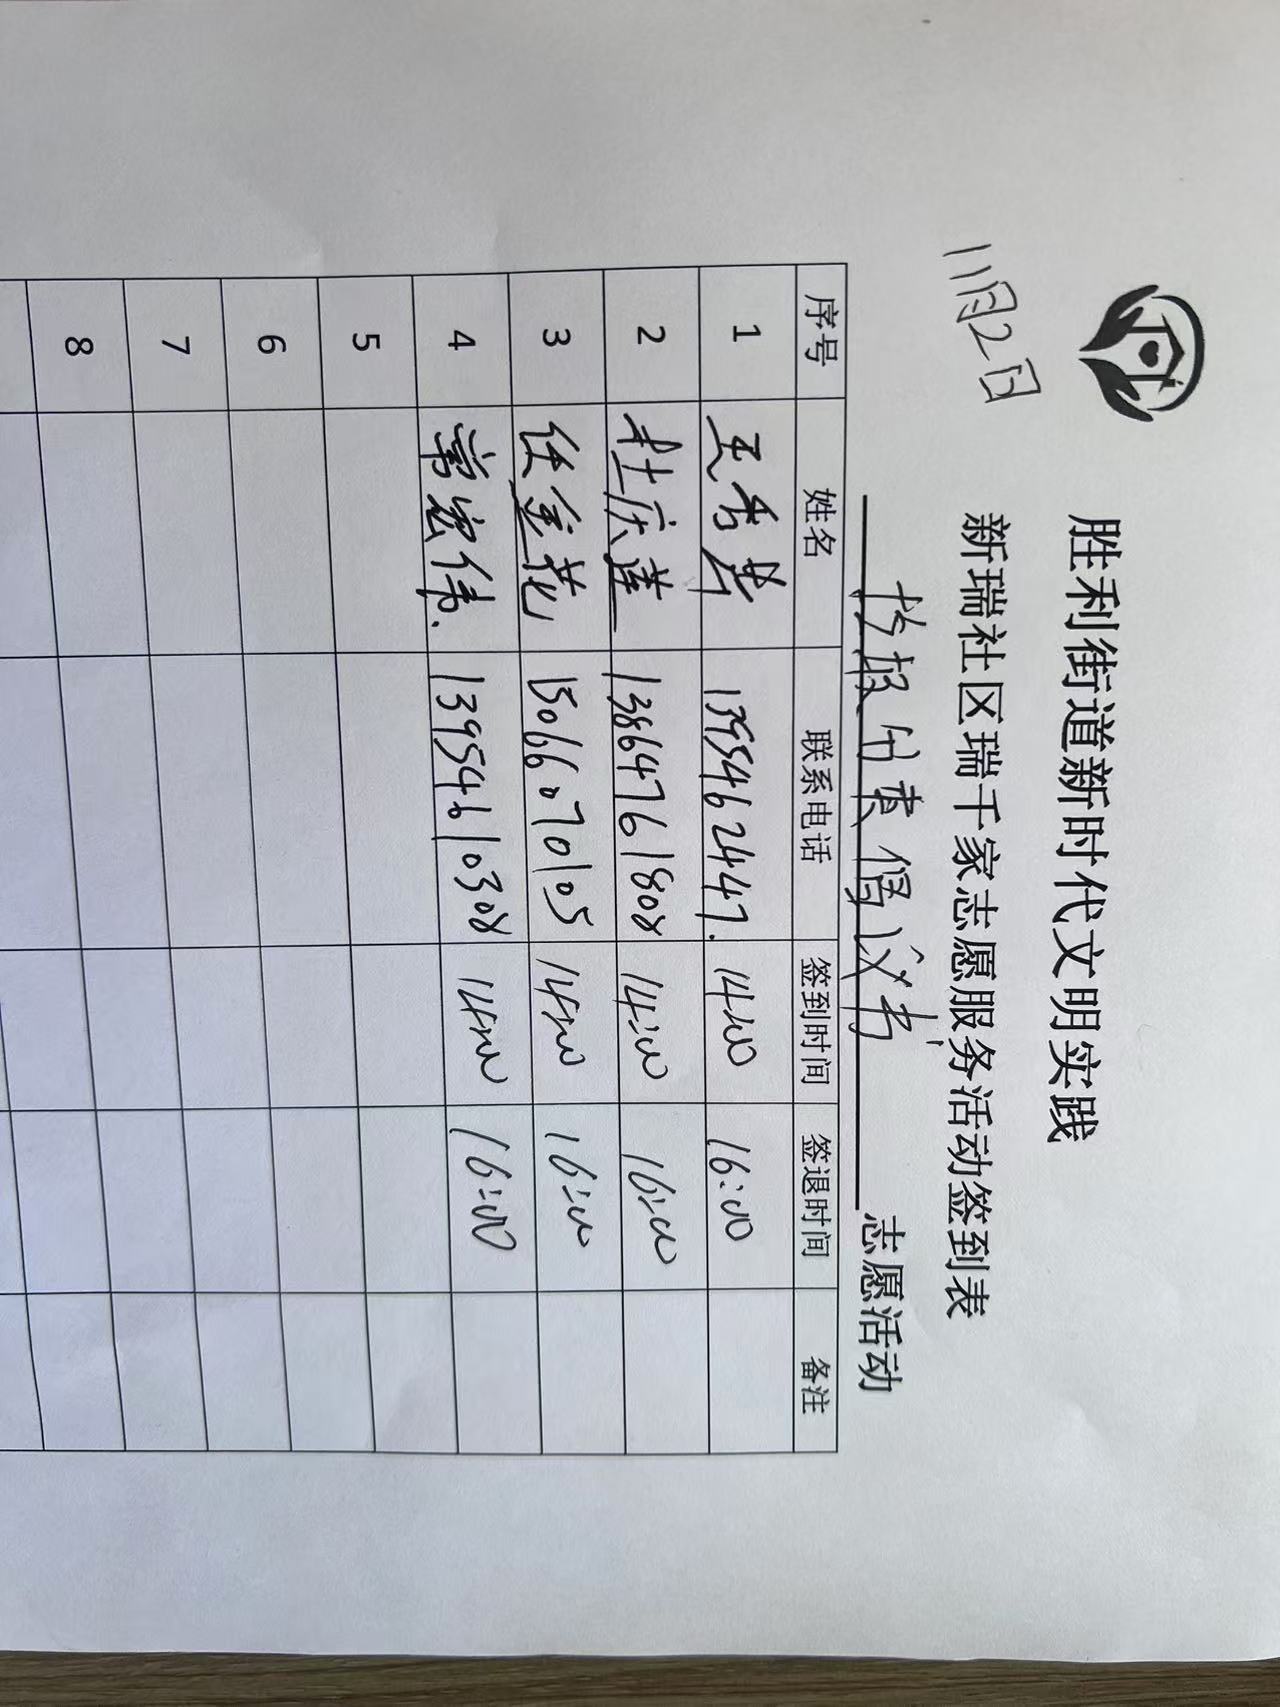 11月2日
胜利街道新时代文明实践
新瑞社区瑞千家志愿服务活动签到表
倡议书 志愿活动
序号 姓名 联系电话 签到时间 签退时间 备注
1 王秀 1395462447. 14:00 16:00
2 杜庆莲 13864761808 14:00 16:00
3 任金花 15066070105 14:00 16:00
4 常宏伟. 13954610308 14:00 16:00
5
6
7
8